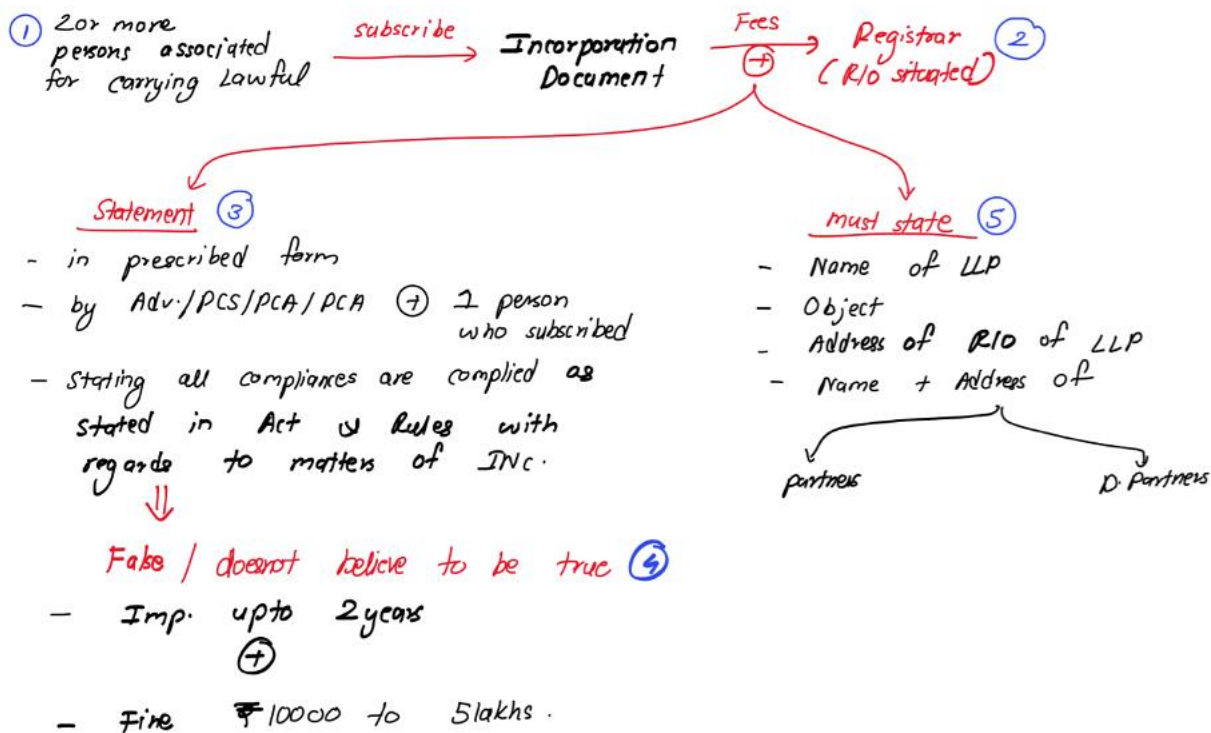 ① 2 or more
persons associated
for carrying Lawful
subscribe
Incorporation
Document
Fees
+
Registrar ②
(R/O situated)
Statement ③
- in prescribed form
- by Adv./PCS/PCA/PCA + 1 person
who subscribed
- Stating all compliances are complied as
stated in Act & Rules with
regards to matters of INC.
False / doesnot believe to be true ④
- Imp. upto 2 years
+
- Fine ₹10000 to 5lakhs.
must state ⑤
- Name of LLP
- Object
- Address of R/O of LLP
- Name + Address of
partners D. Partners